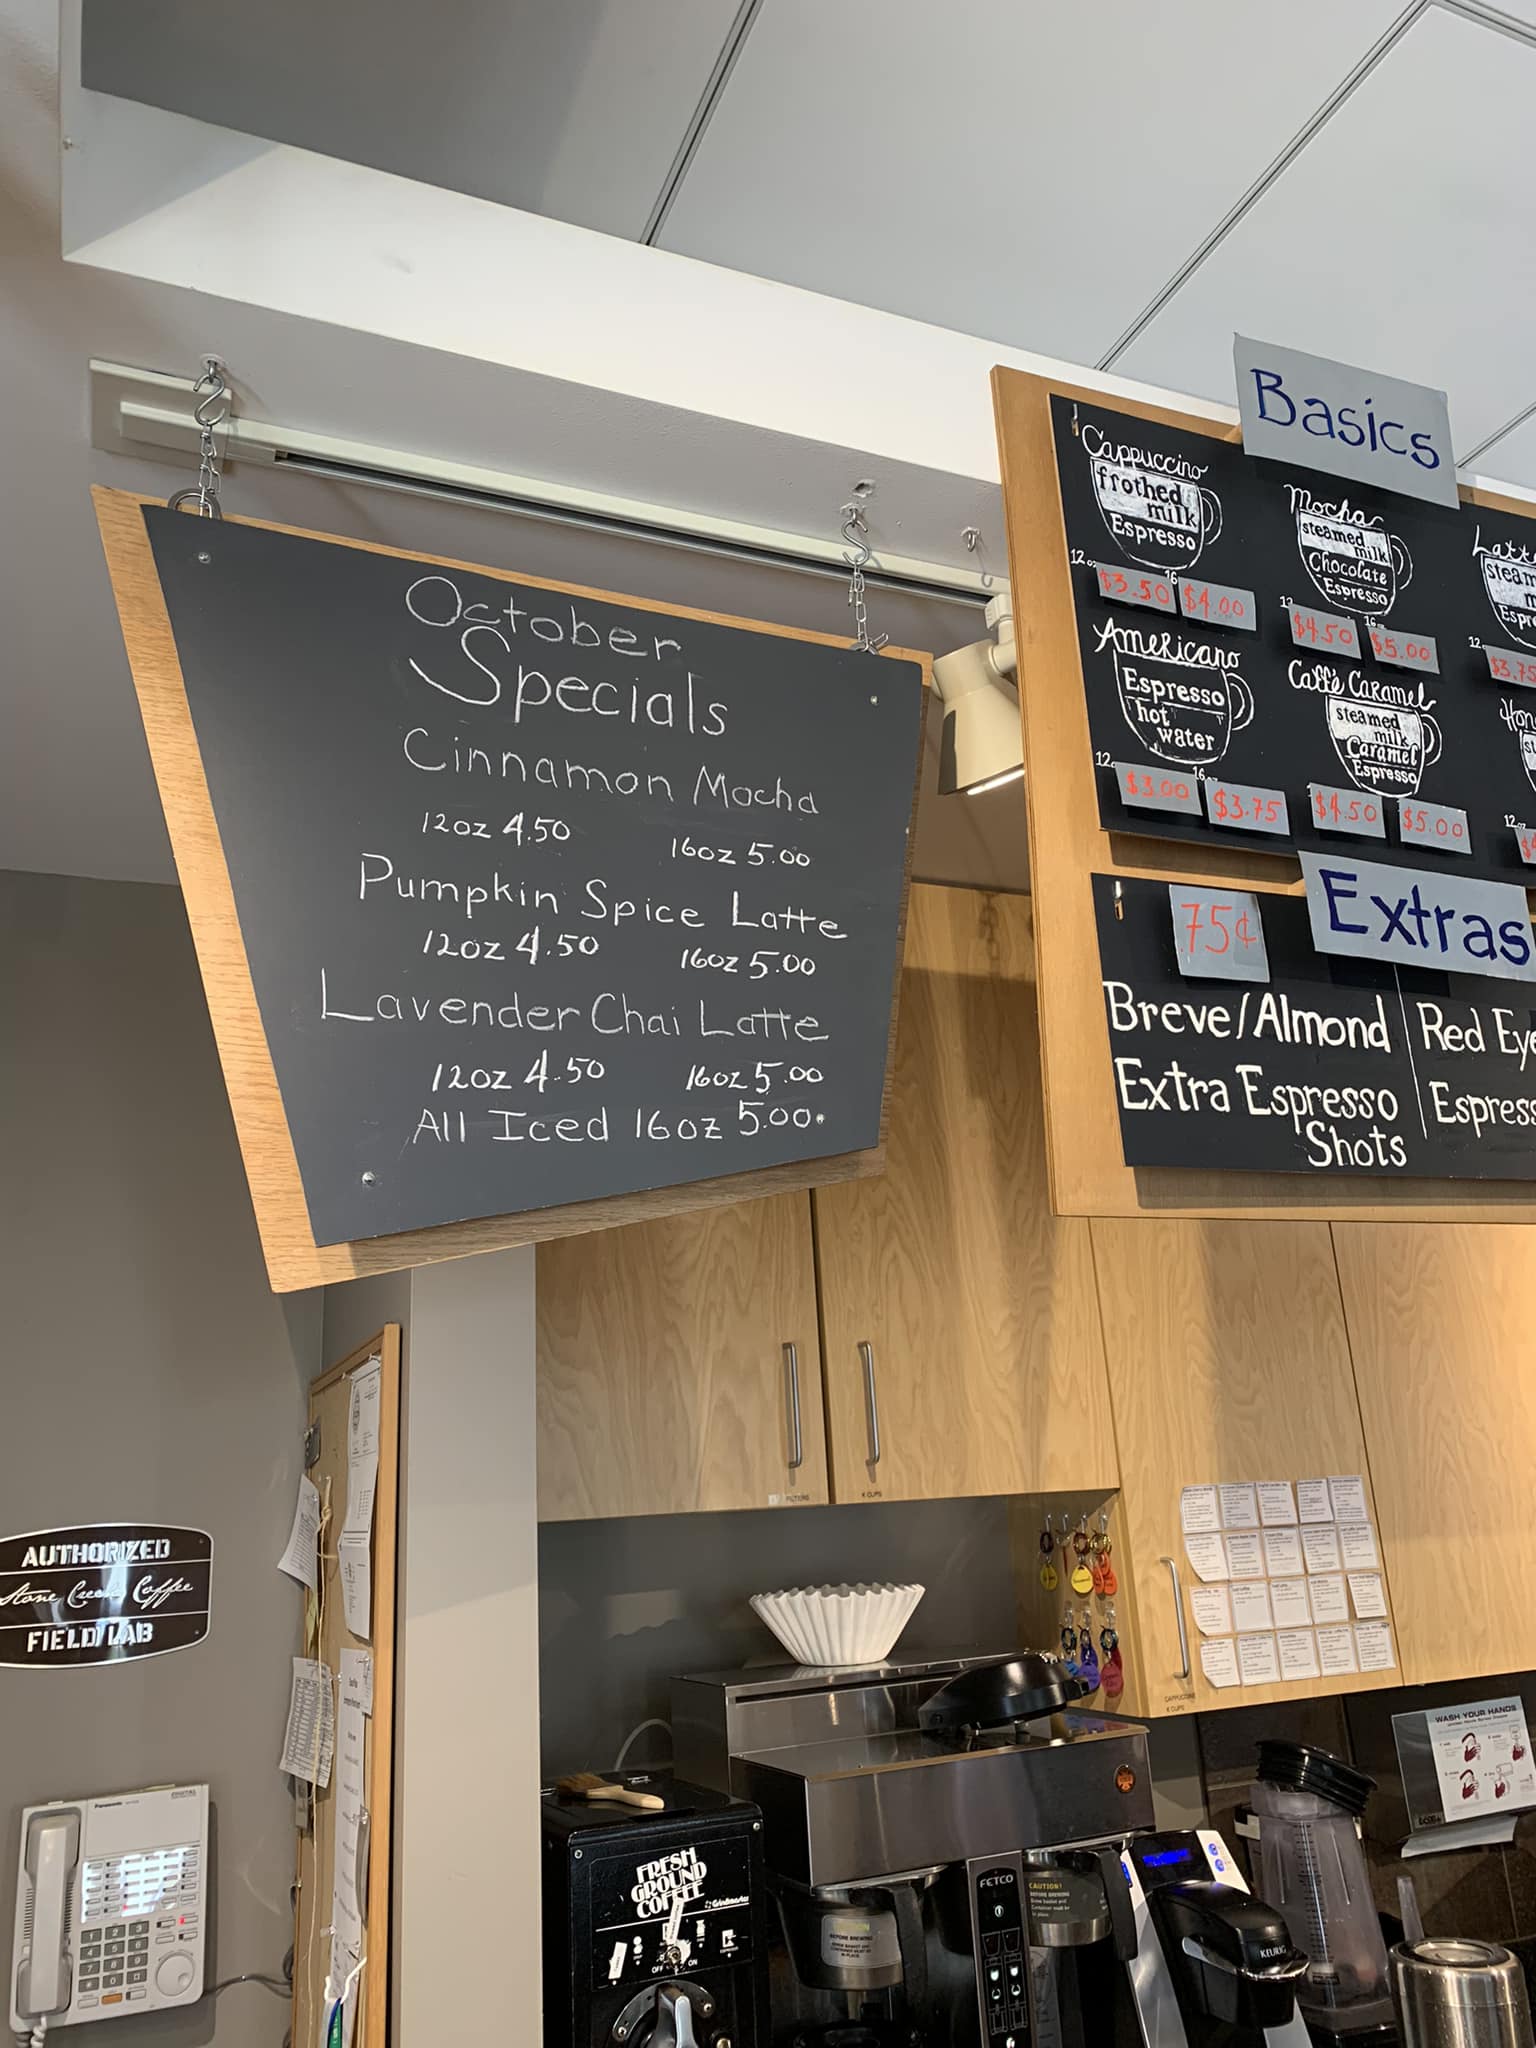 October
Specials
Cinnamon Mocha
12oz 4.50 16oz 5.00
Pumpkin Spice Latte
12oz 4.50 16oz 5.00
Lavender Chai Latte
12oz 4.50 16oz 5.00
All Iced 16oz 5.00.
Basics
Cappuccino
frothed
milk
Espresso
12oz 16
$3.50 $4.00
Mocha
steamed
milk
Chocolate
Espresso
12 16oz
$4.50 $5.00
Latt
steam
m
Espr
12
$3.75
Americano
Espresso
hot
water
12 16oz
$3.00 $3.75
Caffè Caramel
steamed
milk
Caramel
Espresso
$4.50 $5.00
Hon
st
12oz
$4
Extras
75¢
Breve/Almond
Extra Espresso
Shots
Red Eye
Espress
FILTERS
K CUPS
CAPPUCCINO
K CUPS
AUTHORIZED
Stone Creek Coffee
FIELD LAB
Panasonic
DIGITAL
FRESH
GROUND
COFFEE
Grindmaster
OFF ON
FETCO
CAUTION!
BEFORE BREWING
BEFORE BREWING
KEURIG
WASH YOUR HANDS